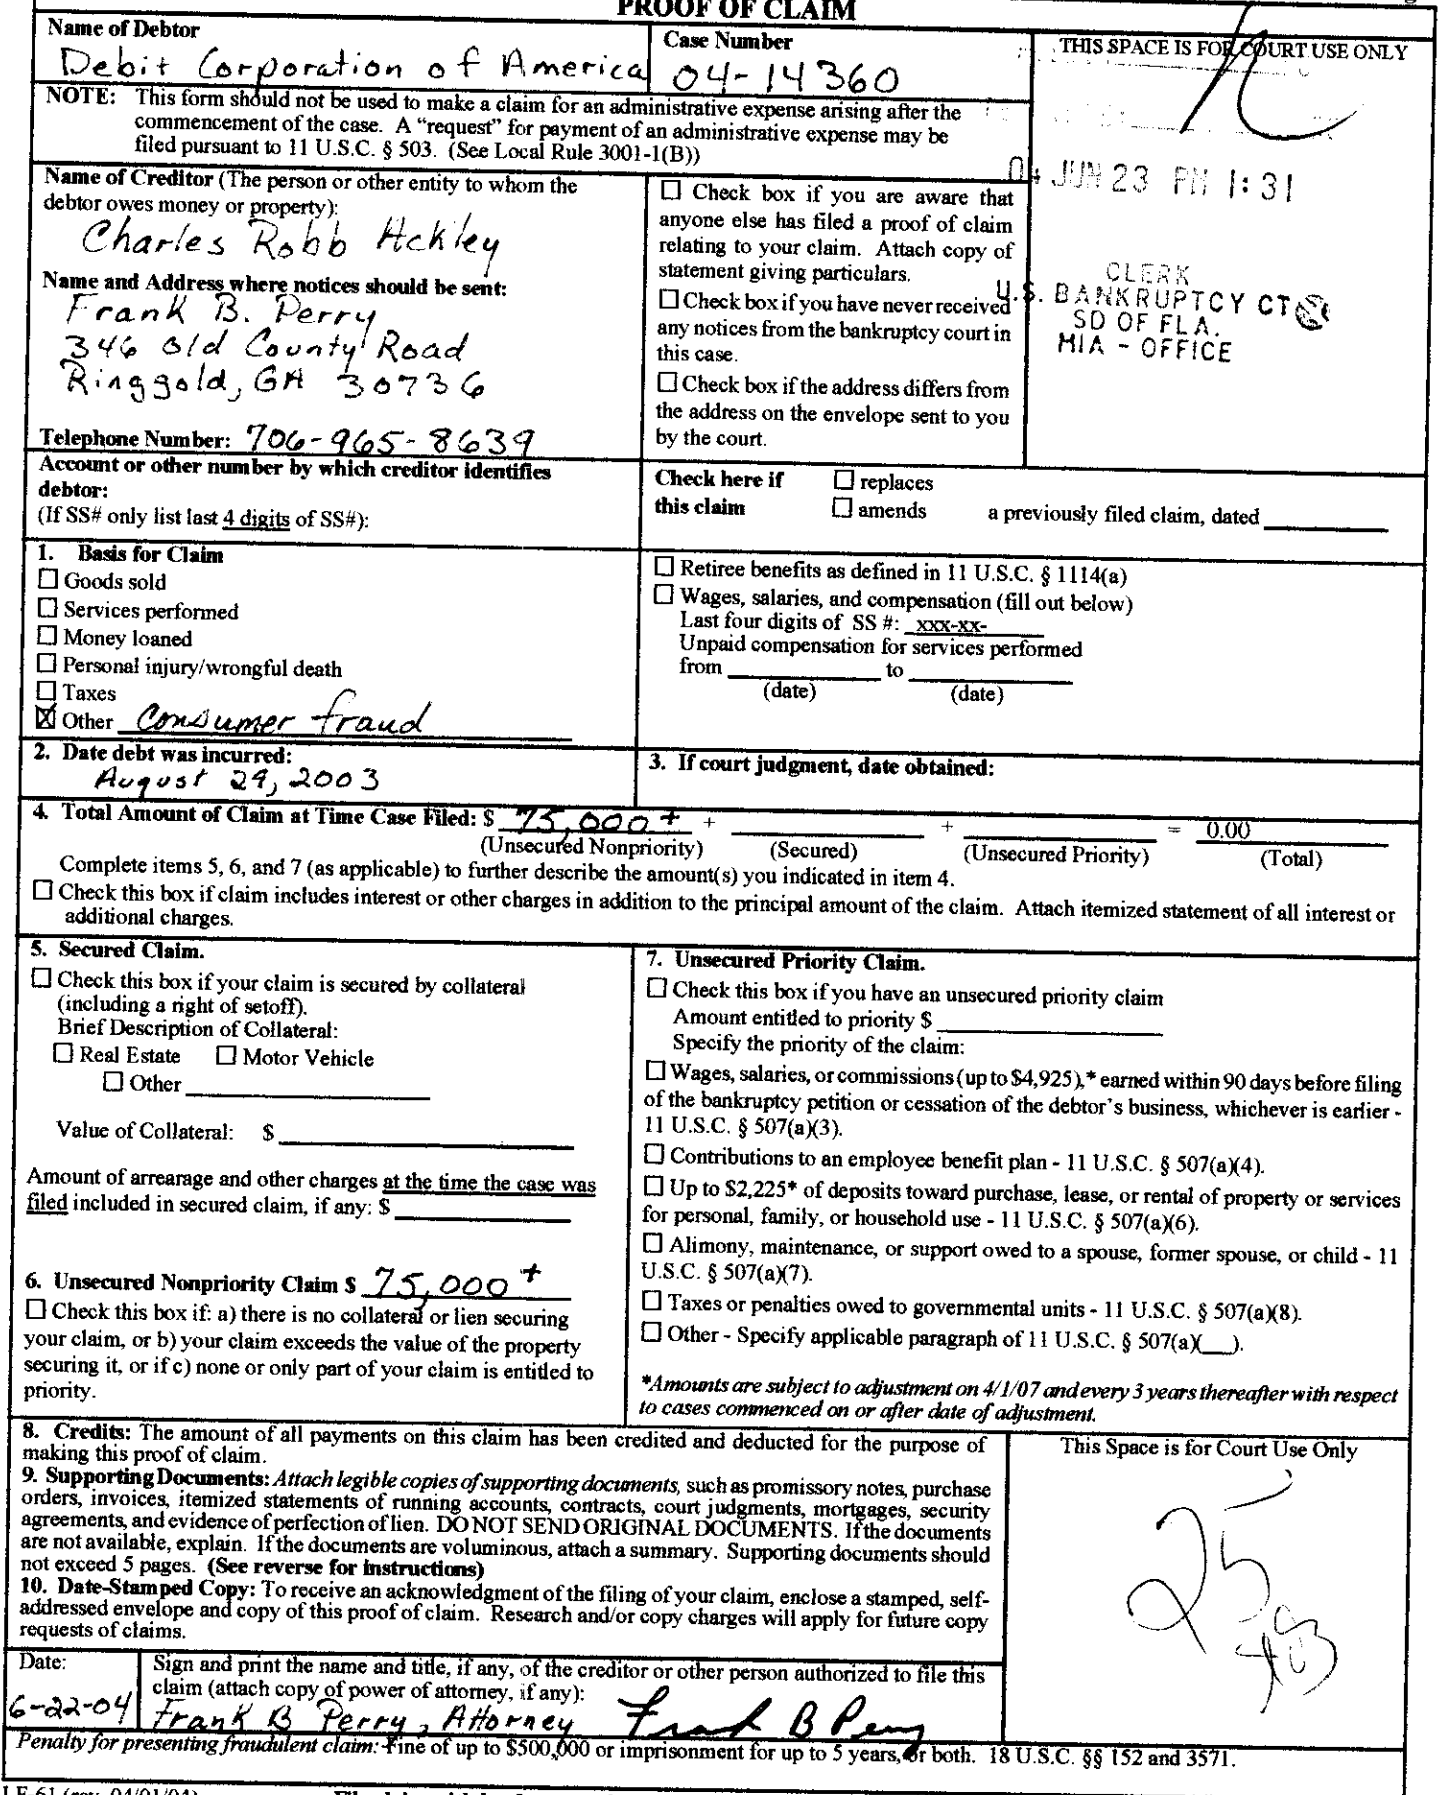 PROOF OF CLAIM
Name of Debtor
Debit Corporation of America
Case Number
04-14360
THIS SPACE IS FOR COURT USE ONLY
NOTE: This form should not be used to make a claim for an administrative expense arising after the
commencement of the case. A "request" for payment of an administrative expense may be
filed pursuant to 11 U.S.C. § 503. (See Local Rule 3001-1(B))
04 JUN 23 PM 1:31
CLERK
U.S. BANKRUPTCY CT
SD OF FLA.
MIA - OFFICE
Name of Creditor (The person or other entity to whom the
debtor owes money or property):
Charles Robb Ackley
Name and Address where notices should be sent:
Frank B. Perry
346 Old County Road
Ringgold, GA 30736
Telephone Number: 706-965-8639
☐ Check box if you are aware that
anyone else has filed a proof of claim
relating to your claim. Attach copy of
statement giving particulars.
☐ Check box if you have never received
any notices from the bankruptcy court in
this case.
☐ Check box if the address differs from
the address on the envelope sent to you
by the court.
Account or other number by which creditor identifies
debtor:
(If SS# only list last 4 digits of SS#):
Check here if ☐ replaces
this claim ☐ amends a previously filed claim, dated
1. Basis for Claim
☐ Goods sold
☐ Services performed
☐ Money loaned
☐ Personal injury/wrongful death
☐ Taxes
☒ Other Consumer fraud
☐ Retiree benefits as defined in 11 U.S.C. § 1114(a)
☐ Wages, salaries, and compensation (fill out below)
Last four digits of SS #: xxx-xx-
Unpaid compensation for services performed
from to
(date) (date)
2. Date debt was incurred:
August 29, 2003
3. If court judgment, date obtained:
4. Total Amount of Claim at Time Case Filed: $ 75,000+ + + = 0.00
(Unsecured Nonpriority) (Secured) (Unsecured Priority) (Total)
Complete items 5, 6, and 7 (as applicable) to further describe the amount(s) you indicated in item 4.
☐ Check this box if claim includes interest or other charges in addition to the principal amount of the claim. Attach itemized statement of all interest or
additional charges.
5. Secured Claim.
☐ Check this box if your claim is secured by collateral
(including a right of setoff).
Brief Description of Collateral:
☐ Real Estate ☐ Motor Vehicle
☐ Other
Value of Collateral: $
Amount of arrearage and other charges at the time the case was
filed included in secured claim, if any: $
6. Unsecured Nonpriority Claim $ 75,000+
☐ Check this box if: a) there is no collateral or lien securing
your claim, or b) your claim exceeds the value of the property
securing it, or if c) none or only part of your claim is entitled to
priority.
7. Unsecured Priority Claim.
☐ Check this box if you have an unsecured priority claim
Amount entitled to priority $
Specify the priority of the claim:
☐ Wages, salaries, or commissions (up to $4,925),* earned within 90 days before filing
of the bankruptcy petition or cessation of the debtor's business, whichever is earlier -
11 U.S.C. § 507(a)(3).
☐ Contributions to an employee benefit plan - 11 U.S.C. § 507(a)(4).
☐ Up to $2,225* of deposits toward purchase, lease, or rental of property or services
for personal, family, or household use - 11 U.S.C. § 507(a)(6).
☐ Alimony, maintenance, or support owed to a spouse, former spouse, or child - 11
U.S.C. § 507(a)(7).
☐ Taxes or penalties owed to governmental units - 11 U.S.C. § 507(a)(8).
☐ Other - Specify applicable paragraph of 11 U.S.C. § 507(a)(__).
*Amounts are subject to adjustment on 4/1/07 and every 3 years thereafter with respect
to cases commenced on or after date of adjustment.
8. Credits: The amount of all payments on this claim has been credited and deducted for the purpose of
making this proof of claim.
9. Supporting Documents: Attach legible copies of supporting documents, such as promissory notes, purchase
orders, invoices, itemized statements of running accounts, contracts, court judgments, mortgages, security
agreements, and evidence of perfection of lien. DO NOT SEND ORIGINAL DOCUMENTS. If the documents
are not available, explain. If the documents are voluminous, attach a summary. Supporting documents should
not exceed 5 pages. (See reverse for instructions)
10. Date-Stamped Copy: To receive an acknowledgment of the filing of your claim, enclose a stamped, self-
addressed envelope and copy of this proof of claim. Research and/or copy charges will apply for future copy
requests of claims.
This Space is for Court Use Only
25
Date:
6-22-04
Sign and print the name and title, if any, of the creditor or other person authorized to file this
claim (attach copy of power of attorney, if any):
Frank B Perry, Attorney Frank B Perry
Penalty for presenting fraudulent claim: Fine of up to $500,000 or imprisonment for up to 5 years, or both. 18 U.S.C. §§ 152 and 3571.